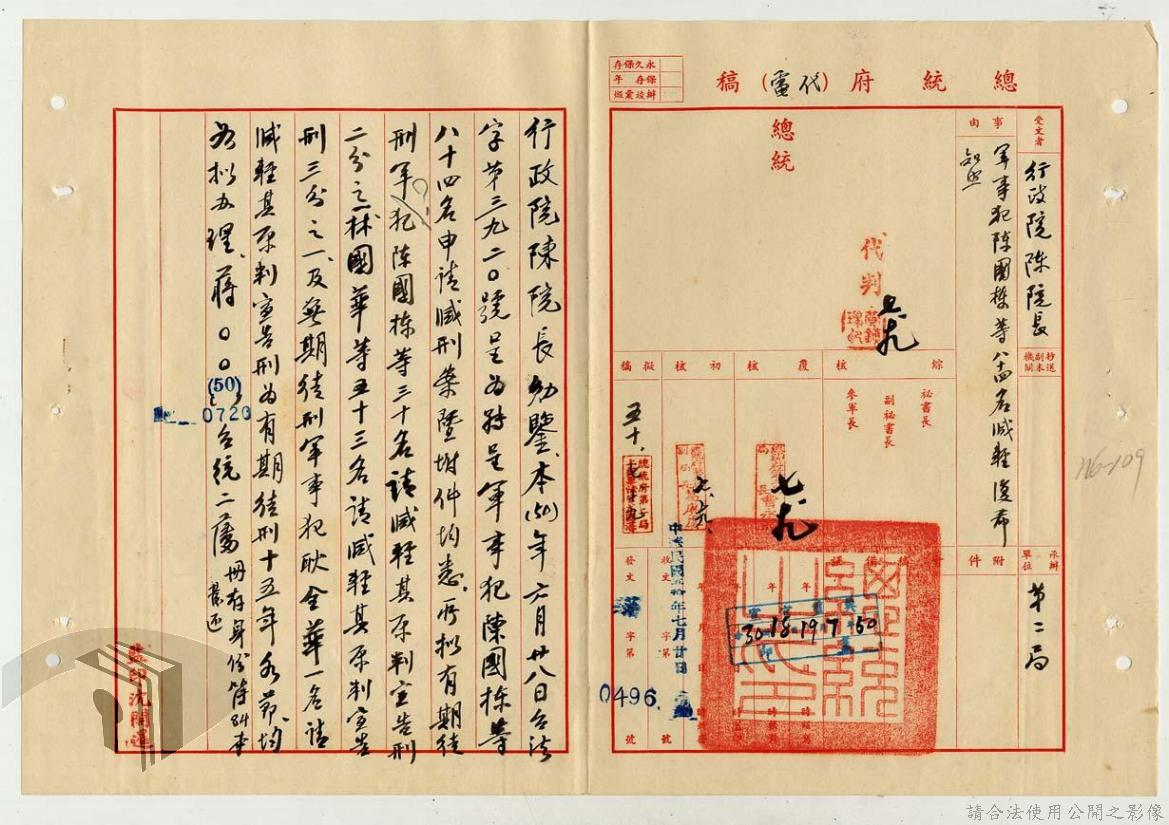 總統府（代電）稿
永久保存
保存 年
受文者 行政院陳院長
事由 軍事犯陳國棟等八十四名減輕復希
知照
抄送副本機關
承辦單位 第二局
附件
總統
代判
七、十九
綜核
秘書長
副秘書長
參軍長
覆核
七、十九
初核
擬稿
五十、
中華民國五十年七月廿日
發文 字第 號
收文 字第 號
0496
30 18 19 17 50
行政院陳院長勛鑒、本(50)年六月廿八日台法
字第三九二〇號呈為特呈軍事犯陳國棟等
八十四名申請減刑案暨附件均悉、所擬有期徒
刑軍犯陳國棟等三十名請減輕其原判宣告刑
二分之一林國華等五十三名請減輕其原判宣告
刑三分之一、及無期徒刑軍事犯耿全華一名請
減輕其原判宣告刑為有期徒刑十五年各節、均
如擬辦理、蔣〇〇(50) 0720 台統二 冊存
監印沈開運
116-109
請合法使用公開之影像